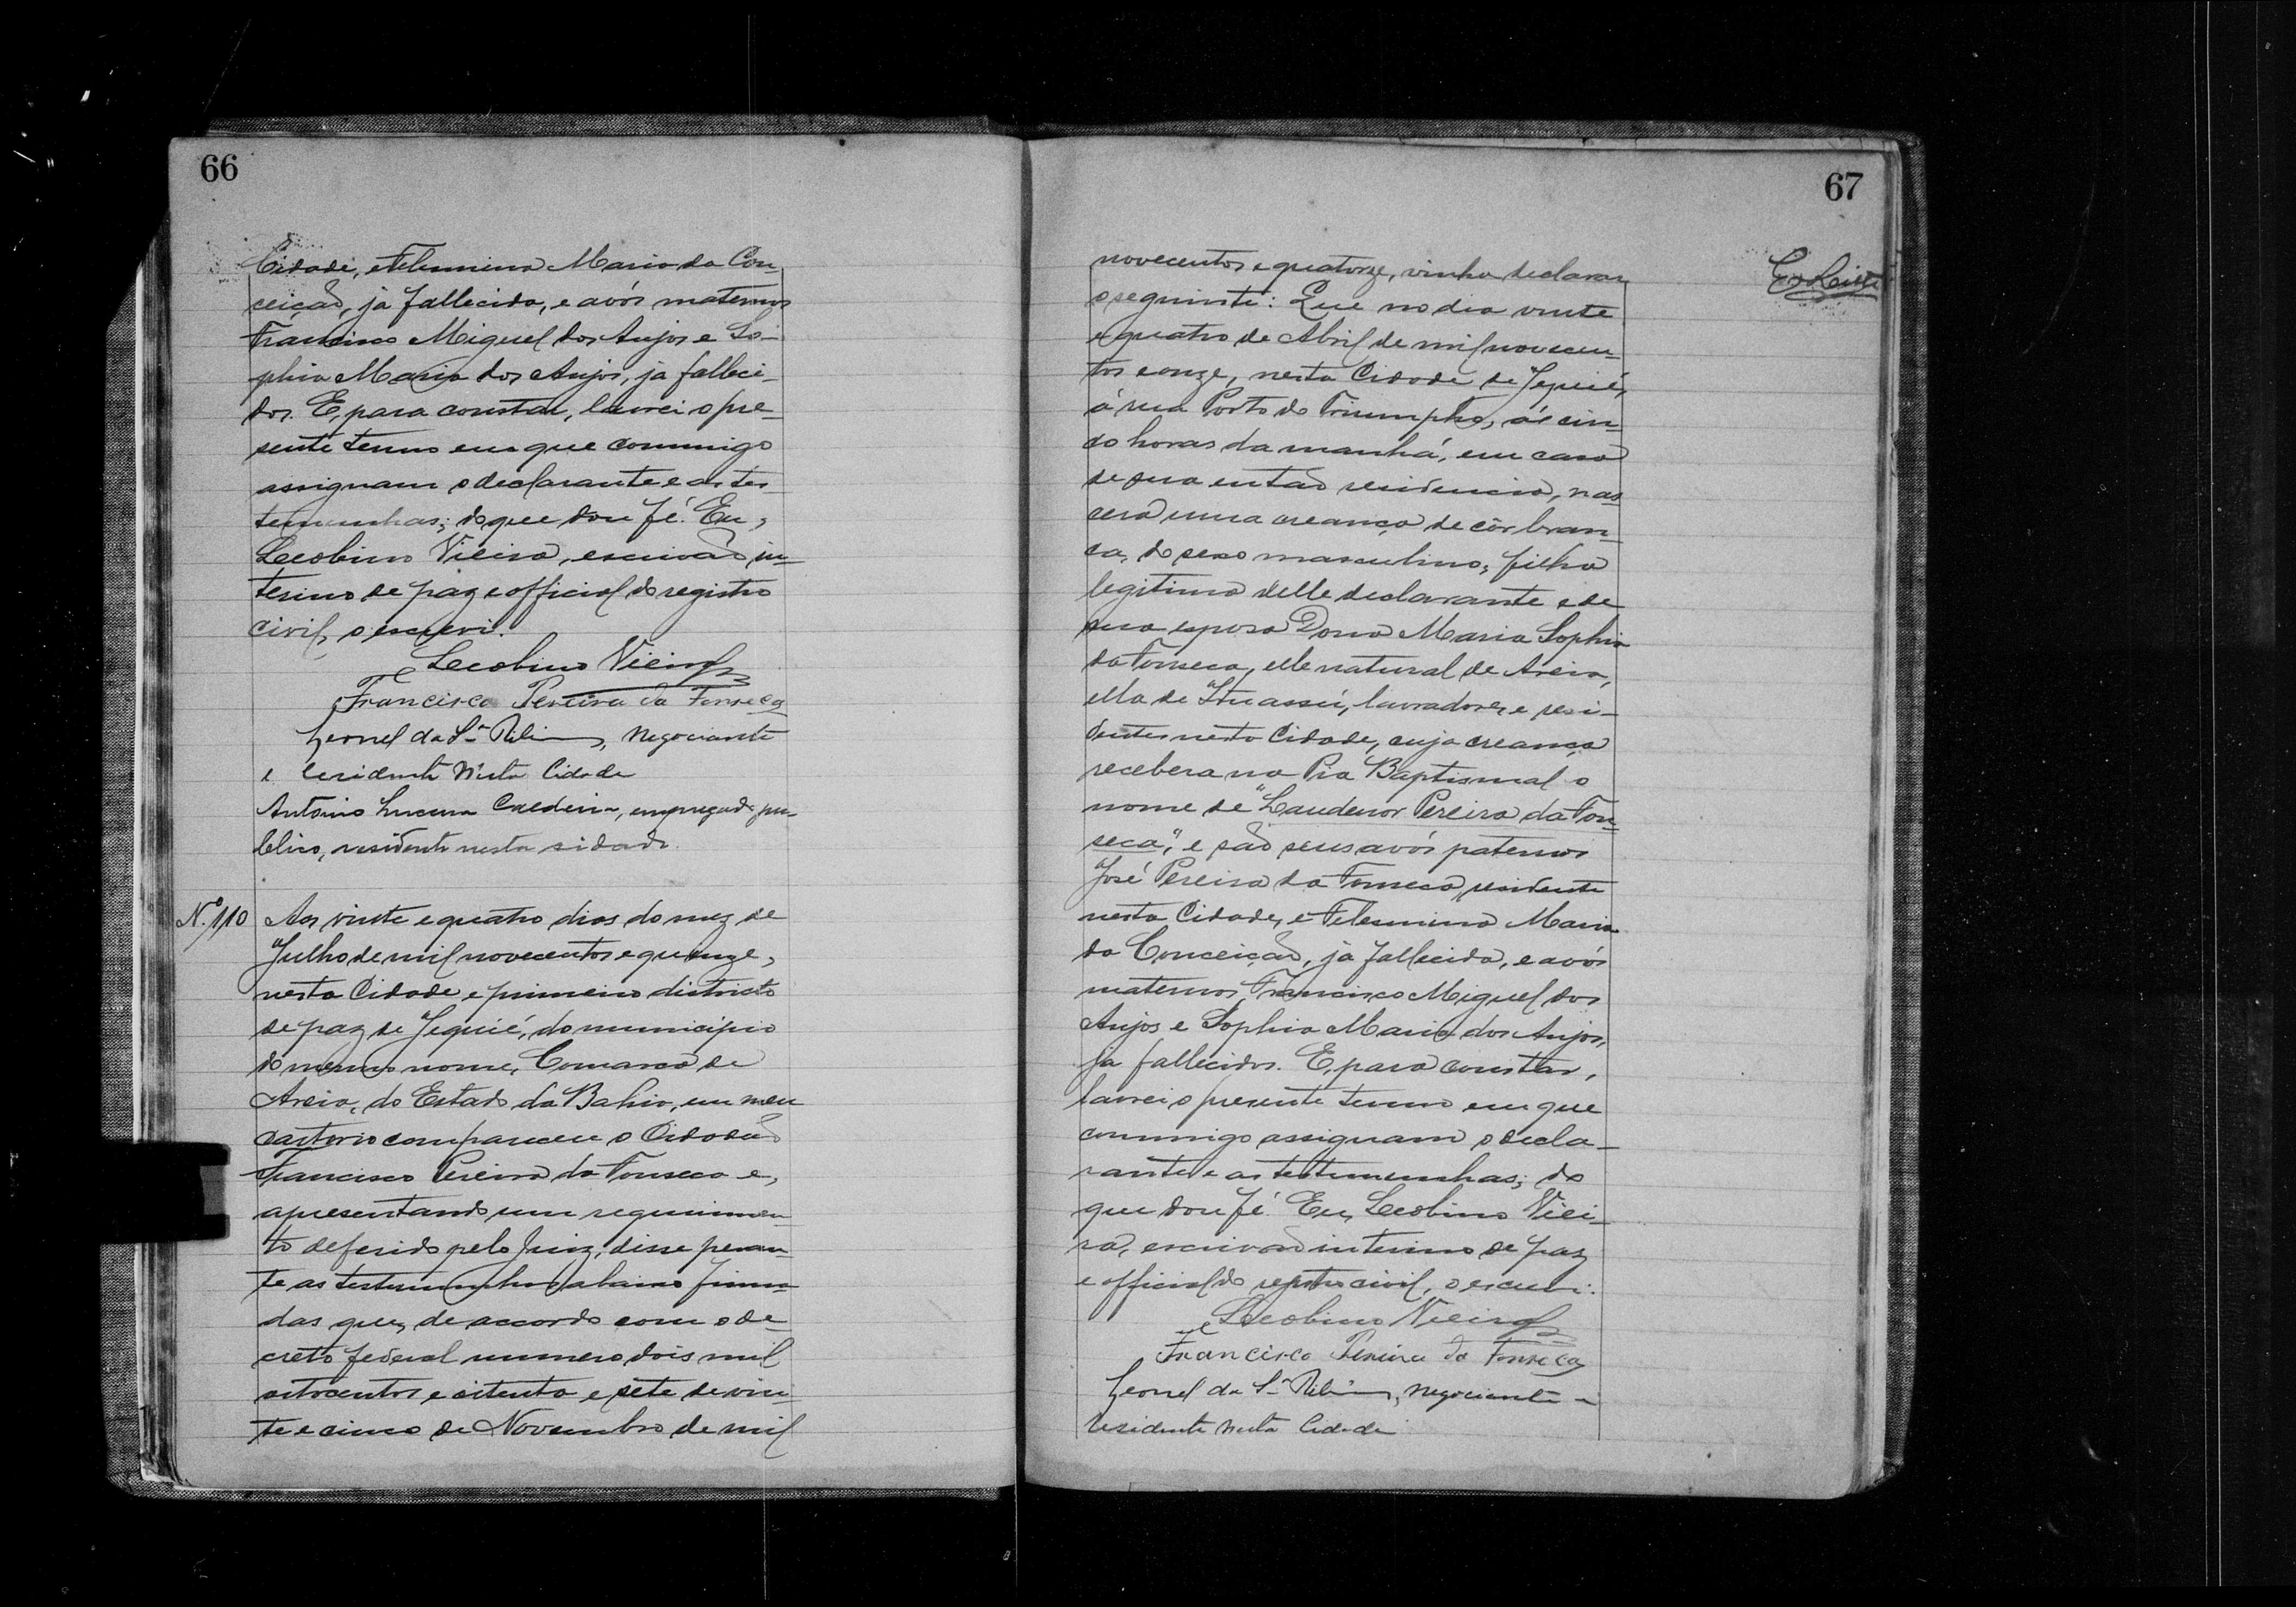 66
Cidade, e Felesmina Maria da Con-
ceição, já fallecida, e avós maternos
Francisco Miguel dos Anjos e So-
phia Maria dos Anjos, já falleci-
dos. E, para constar, lavrei o pre-
sente termo em que commigo
assignam o declarante e as tes-
temunhas; do que dou fé. Eu,
Leobino Vieira, escrivão in-
terino de paz e official do registro
civil, o escrevi.
Leobino Vieira
Francisco Pereira da Fonseca
Leonel da Sª, Negociante
e residente nesta Cidade
Antonio Caldeira, empregado pu-
blico, residente nesta cidade.
Nº 110
Aos vinte e quatro dias do mez de
Julho de mil novecentos e quinze,
nesta Cidade e primeiro districto
de paz de Jequié, do municipio
do mesmo nome, Comarca de
Areia, do Estado da Bahia, em meu
cartorio compareceu o Cidadão
Francisco Pereira da Fonseca e,
apresentando um requerimen-
to deferido pelo Juiz, disse peran-
te as testemunhas abaixo firma-
das que, de accordo com o de-
creto federal numero dois mil
oitocentos e oitenta e sete de vin-
te e cinco de Novembro de mil
67
novecentos e quatorze, vinha declarar
o seguinte: Que no dia vinte
e quatro de Abril de mil novecen-
tos e onze, nesta Cidade de Jequié,
á rua Porto do Triumpho, ás cin-
co horas da manhã, em casa
de sua então residencia, nas-
cera uma creança de côr bran-
ca, do sexo masculino, filha
legitima delle declarante e de
sua esposa Dona Maria Sophia
da Fonseca, elle natural de Areia,
ella de Ituassú, lavradores e resi-
dentes nesta Cidade, cuja creança
recebera na Pia Baptismal o
nome de "Laudenor Pereira da Fon-
seca," e são seus avós paternos
José Pereira da Fonseca, residente
nesta Cidade, e Felesmina Maria
da Conceição, já fallecida, e avós
maternos Francisco Miguel dos
Anjos e Sophia Maria dos Anjos,
já fallecidos. E, para constar,
lavrei o presente termo em que
commigo assignam o decla-
rante e as testemunhas; do
que dou fé. Eu, Leobino Viei-
ra, escrivão interino de paz
e official do registro civil, o escrevi.
Leobino Vieira
Francisco Pereira da Fonseca
Leonel da Sª, negociante e
residente nesta Cidade